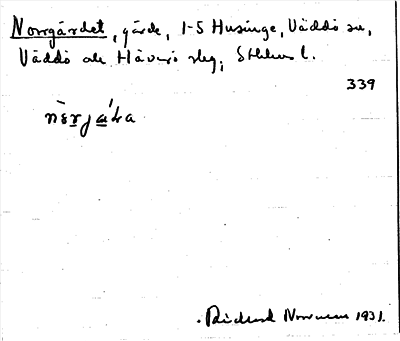 Norrgärdet, gärde, 1-5 Husinge, Väddö sn,
Väddö och Häverö slg, Sthlms l.
339
nèrjá
Rickard 1931.